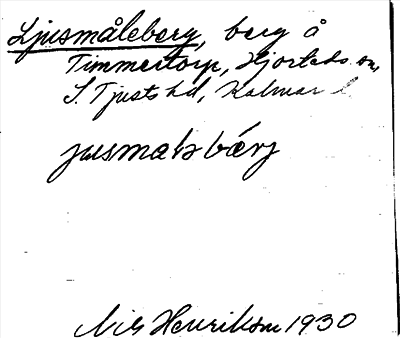 Ljusmåleberg, berg å
Timmertorp, Hjorteds sn,
S. Tjusts hd, Kalmar l.
jusmalsbärj
Nils Henrikson 1930